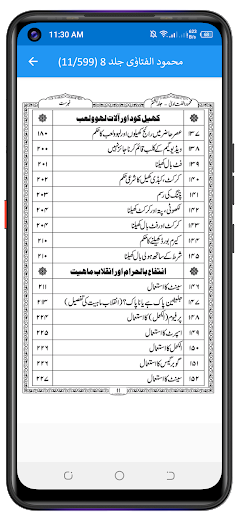 11:30 AM
محمود الفتاوٰی جلد 8 (11/599)
فہرست
کھیل کود اور آلات لہو ولعب
۱۳۷ عصر حاضر میں رائج کھیلوں اور لہو ولعب کا حکم ۱۸۰
۱۳۸ ویڈیو گیم کے کلب قائم کرنا جائز نہیں ۲۰۰
۱۳۹ فٹ بال کھیلنا ۲۰۱
۱۴۰ کرکٹ، کبڈی کھیل کا شرعی حکم ۲۰۲
۱۴۱ پتنگ کی رسم ۲۰۳
۱۴۲ کرکٹ کھیلنا ۲۰۴
۱۴۳ کرکٹ اور فٹ بال کھیلنا ۲۰۴
۱۴۴ کیرم بورڈ کھیلنے کا حکم ۲۱۰
۱۴۵ شرط کے ساتھ والی بال کھیلنا ۲۱۰
انتفاع بالحرام اور انقلاب ماہیت
۱۴۶ سینٹ کا استعمال ۲۱۱
۱۴۷ جلیٹین پاک ہے یا ناپاک؟ (انقلاب ماہیت کی تفصیل) ۲۱۳
۱۴۸ پرفیوم (الکحل) کا استعمال ۲۲۴
۱۴۹ اسپرٹ کا استعمال ۲۲۵
۱۵۰ الکحل کا استعمال ۲۲۶
۱۵۱ گوبر گیس کا استعمال ۲۲۶
۱۵۲ سینٹ کا استعمال ۲۲۷
۱۱